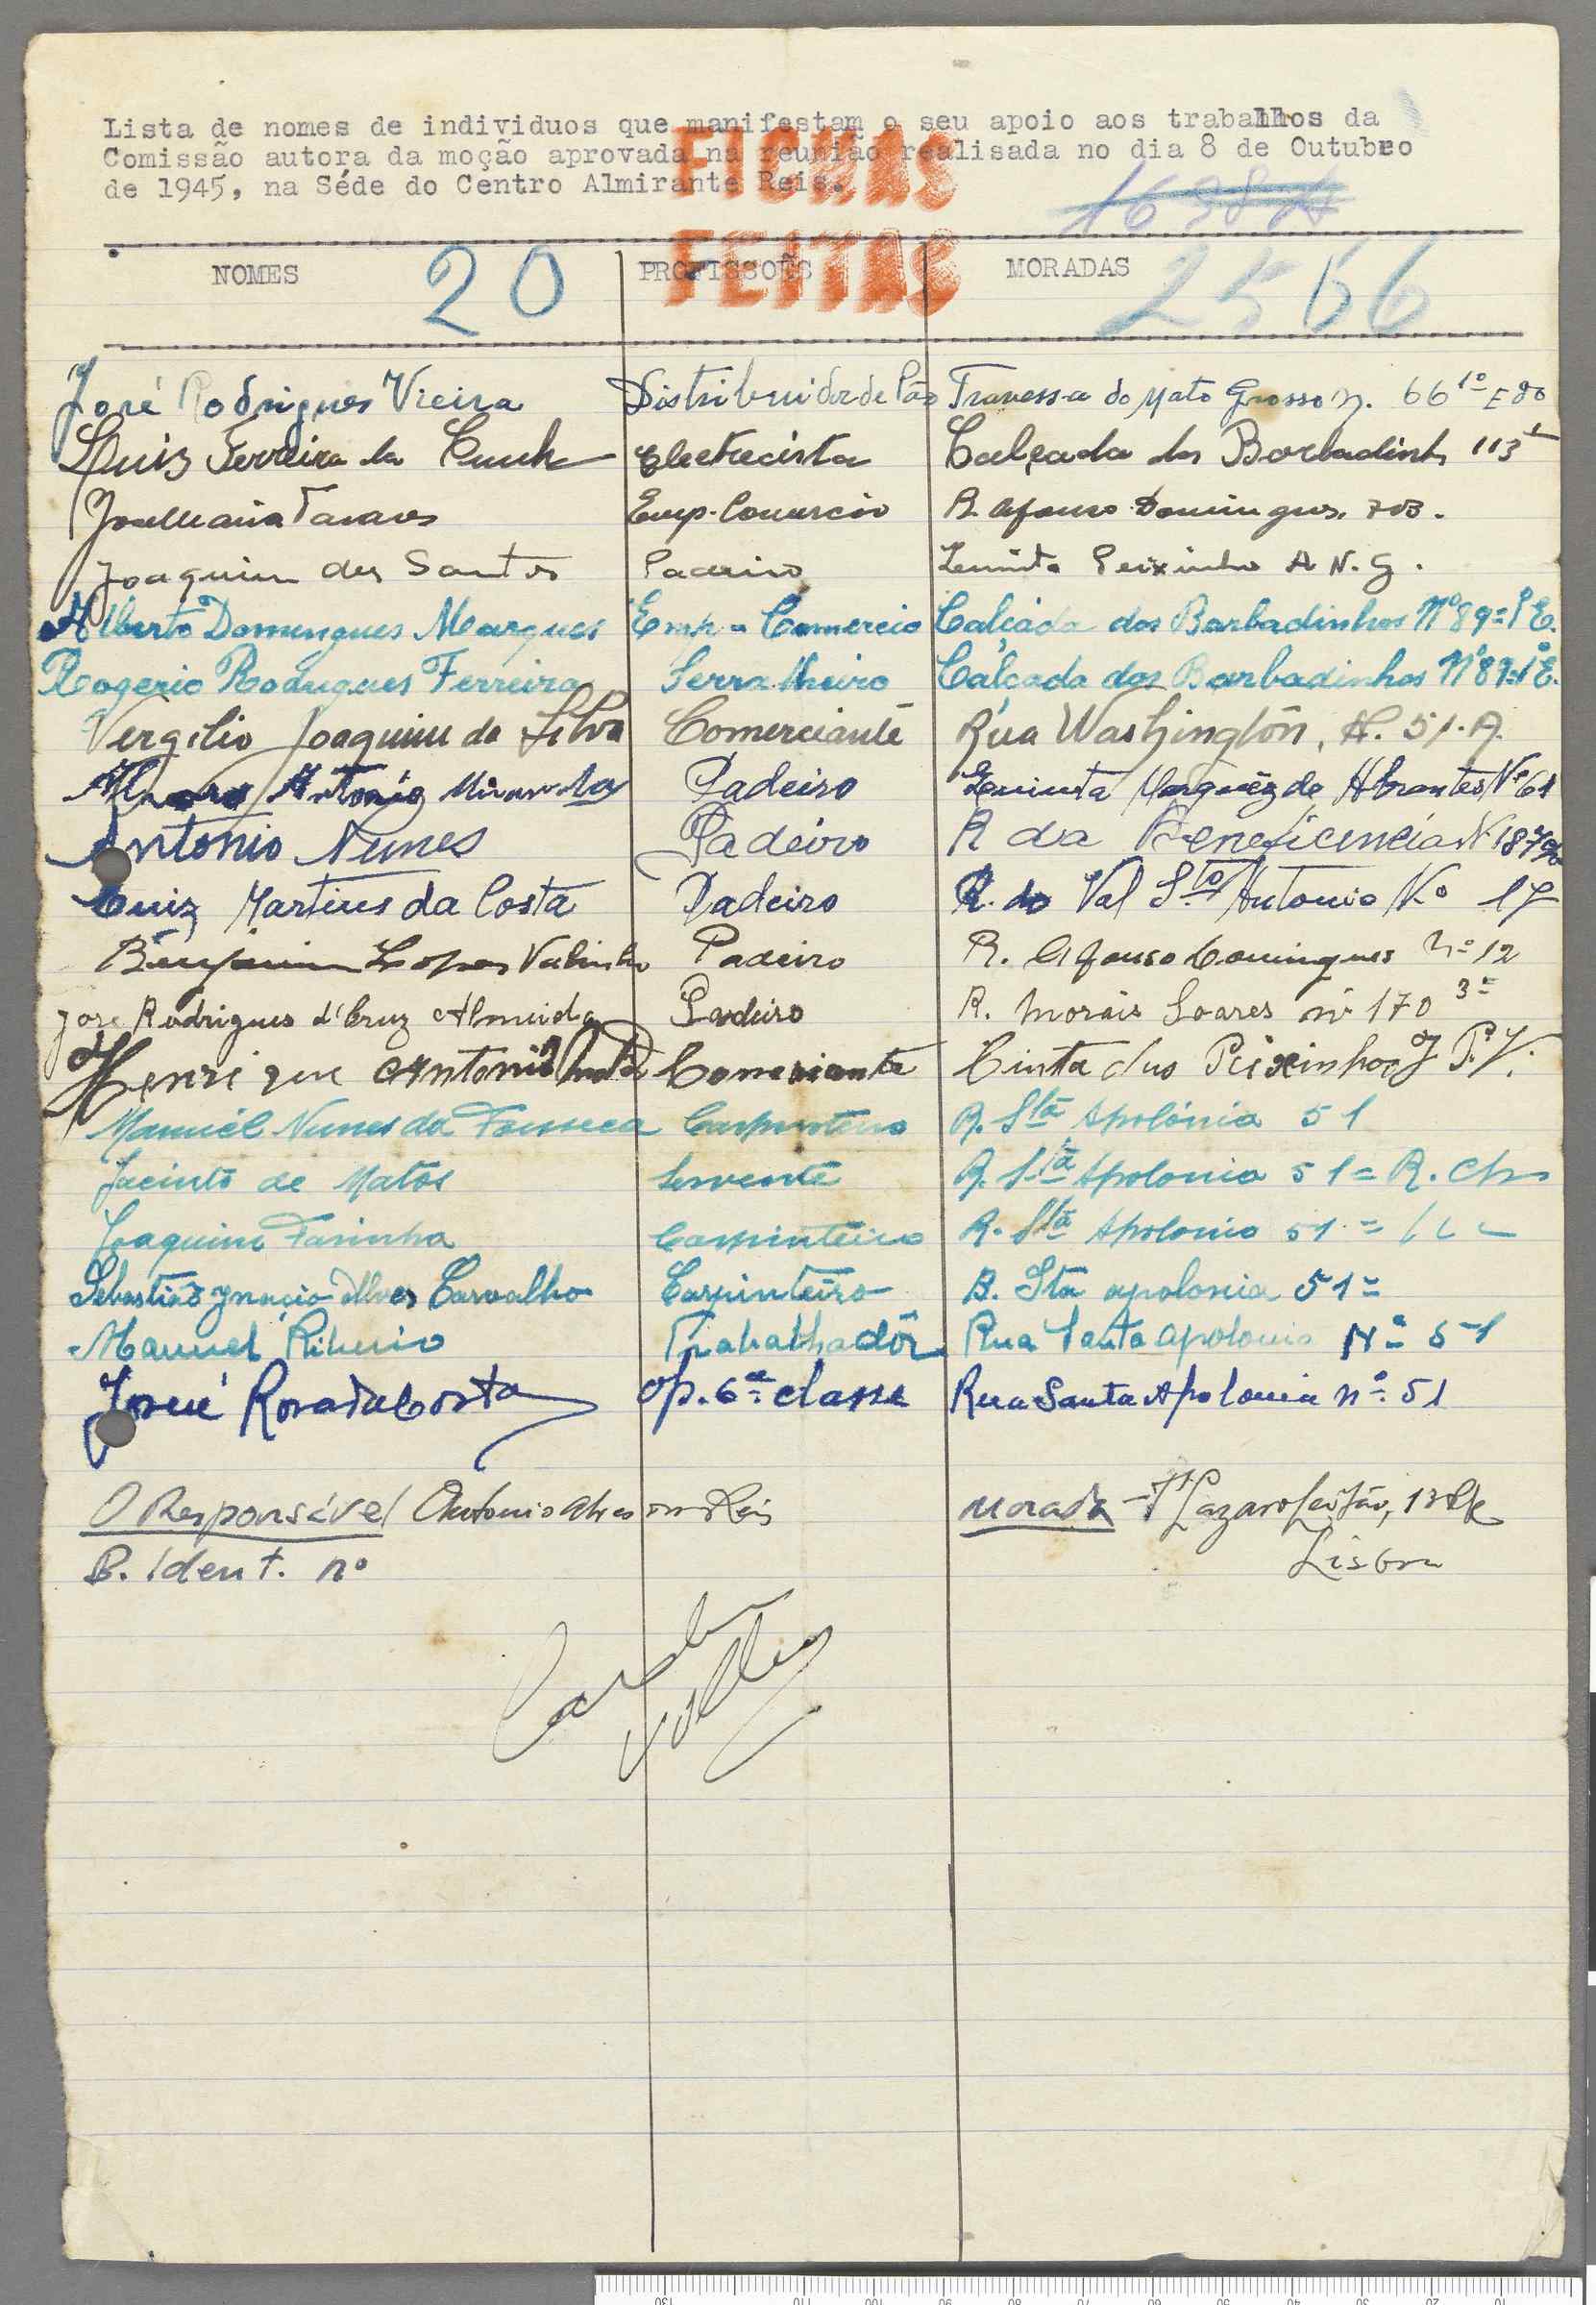 Lista de nomes de individuos que manifestam o seu apoio aos trabalhos da
Comissão autora da moção aprovada na reunião realisada no dia 8 de Outubro
de 1945, na Séde do Centro Almirante Reis.
FICHAS
FEITAS
NOMES 20 PROFISSOES MORADAS 2566
José Rodrigues Vieira Distribuidor de Pão Travessa do Mato Grosso n. 66 1º Edo
Luiz Ferreira da Cunha Electrecista Calçada dos Barbadinhos 113
José Maria Tavares Emp. Comercio R. Afonso Domingues,
Joaquim dos Santos Padeiro Peixinho A N. G.
Alberto Domingues Marques Emp. Comercio Calçada dos Barbadinhos Nº 89=1º E.
Rogerio Rodrigues Ferreira Serralheiro Calçada dos Barbadinhos Nº 89=1º E.
Vergilio Joaquim da Silva Comerciante Rua Washington, N. 51.A.
António Miranda Padeiro Marquêz de Abrantes Nº 61
Antonio Nunes Padeiro R da Beneficencia Nº 187
Luiz Martins da Costa Padeiro R. do Val Sto Antonio Nº 17
Benjamim Lopes Valinho Padeiro R. Afonso Domingues nº 12
José Rodrigues d'Cruz Almeida Padeiro R. Morais Soares nº 170 3º
Henrique Antonio Comerciante Cinta dus Peixinhos J P. V.
Manuél Nunes da Fonseca Carpinteiro R. Stª Apolónia 51
Jacinto de Matos Servente R. Stª Apolonia 51 = R. Ch
Joaquim Farinha Carpinteiro R. Stª Apolonia 51 =
Sebastião Ynacio Alves Carvalho Carpinteiro R. Sta apolonia 51=
Manuel Ribeiro Trabalhadôr Rua Santa apolonia Nº 51
Josué Rosa da Costa Op. 6ª classe Rua Santa Apolonia nº 51
O Responsável Antonio Alves dos Reis Morada - T. Lazaro Leitão, 13
B. Ident. nº Lisboa